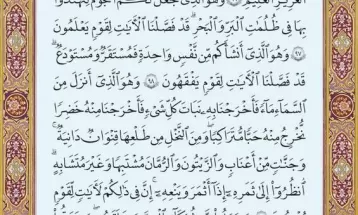 ٱلْعَزِيزِ ٱلْعَلِيمِ ۝ وَهُوَ ٱلَّذِى جَعَلَ لَكُمُ ٱلنُّجُومَ لِتَهْتَدُوا۟
بِهَا فِى ظُلُمَٰتِ ٱلْبَرِّ وَٱلْبَحْرِ ۗ قَدْ فَصَّلْنَا ٱلْءَايَٰتِ لِقَوْمٍ يَعْلَمُونَ
۝٩٧ وَهُوَ ٱلَّذِىٓ أَنشَأَكُم مِّن نَّفْسٍ وَٰحِدَةٍ فَمُسْتَقَرٌّ وَمُسْتَوْدَعٌ ۗ
قَدْ فَصَّلْنَا ٱلْءَايَٰتِ لِقَوْمٍ يَفْقَهُونَ ۝٩٨ وَهُوَ ٱلَّذِىٓ أَنزَلَ مِنَ
ٱلسَّمَآءِ مَآءً فَأَخْرَجْنَا بِهِۦ نَبَاتَ كُلِّ شَىْءٍ فَأَخْرَجْنَا مِنْهُ خَضِرًا
نُّخْرِجُ مِنْهُ حَبًّا مُّتَرَاكِبًا وَمِنَ ٱلنَّخْلِ مِن طَلْعِهَا قِنْوَانٌ دَانِيَةٌ
وَجَنَّٰتٍ مِّنْ أَعْنَابٍ وَٱلزَّيْتُونَ وَٱلرُّمَّانَ مُشْتَبِهًا وَغَيْرَ مُتَشَٰبِهٍ ۗ
ٱنظُرُوٓا۟ إِلَىٰ ثَمَرِهِۦٓ إِذَآ أَثْمَرَ وَيَنْعِهِۦٓ ۚ إِنَّ فِى ذَٰلِكُمْ لَءَايَٰتٍ لِّقَوْمٍ